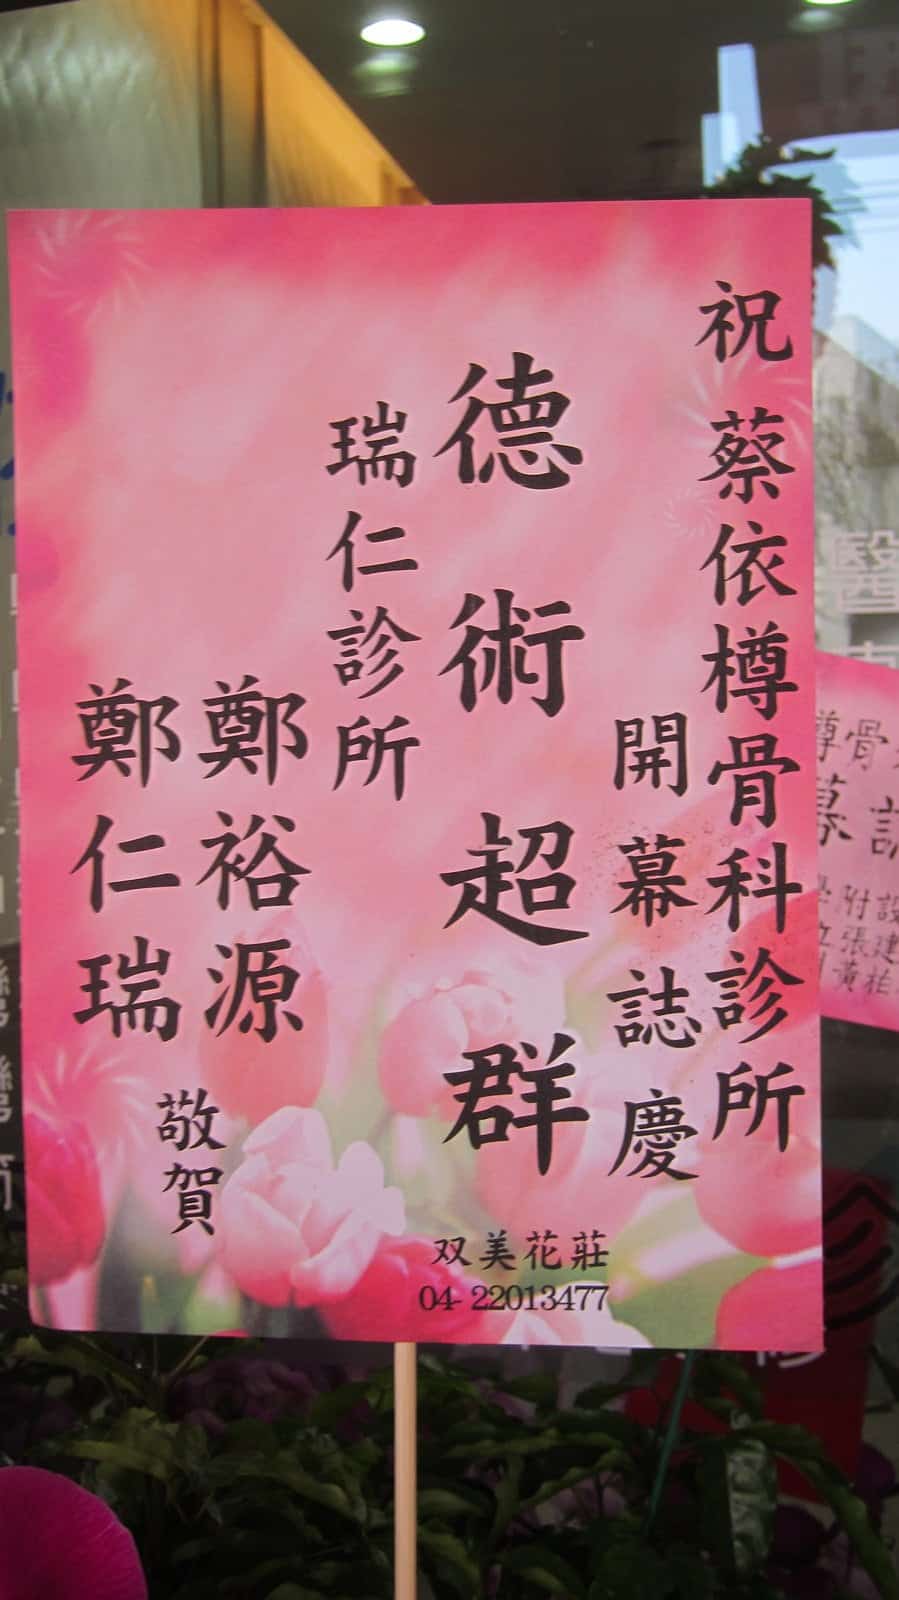 祝 蔡依樽骨科診所
開幕誌慶
德術超群
瑞仁診所
鄭裕源
鄭仁瑞
敬賀
双美花莊
04-22013477
樽骨
幕誌
附設
張建
黃柏
醫